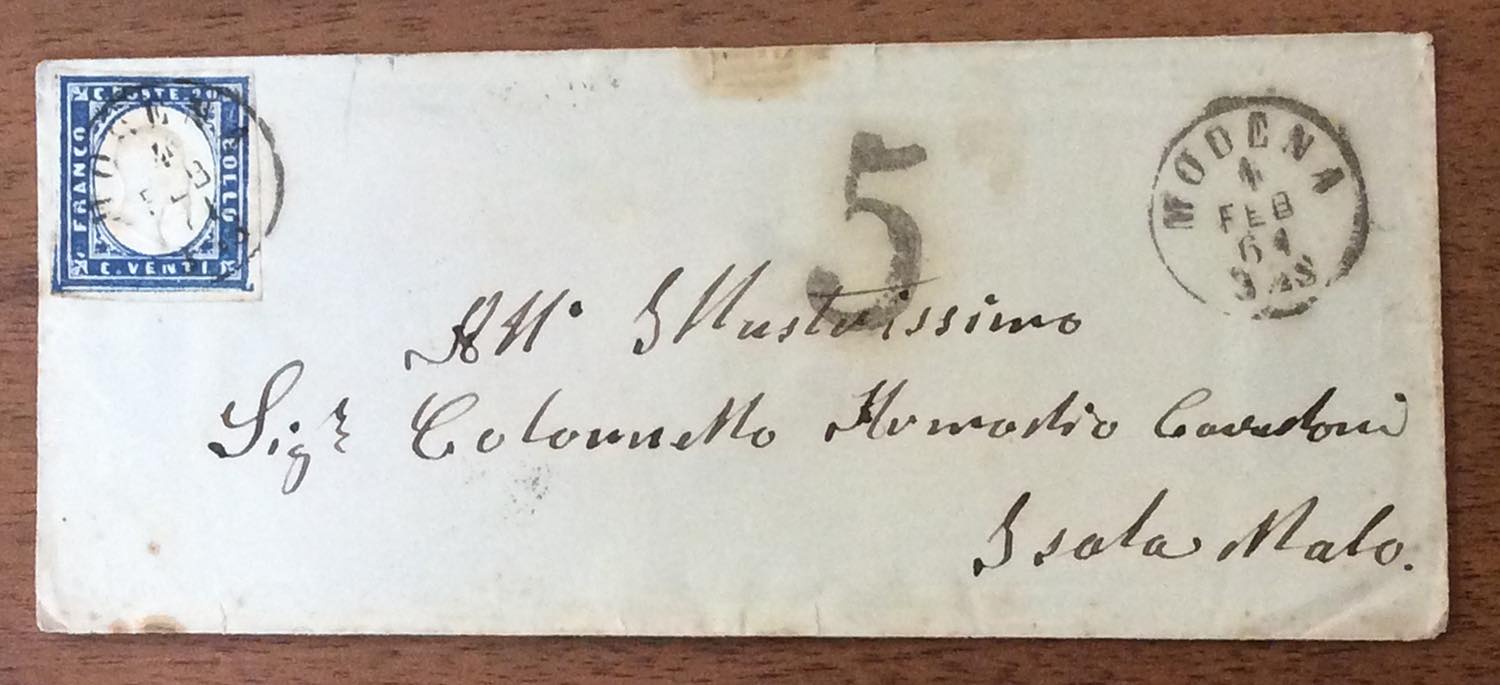 C. POSTE 20
FRANCO
BOLLO
C. VENTI
MODENA
5
MODENA
4
FEB
61
All' Illustrissimo
Sigr Colonnello Cavedoni
Isola Malo.